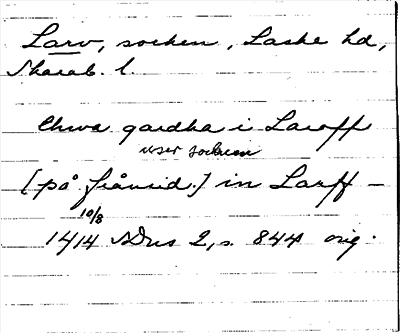 Larv, socken, Laske hd,
Skarab. l.
thwa gardha i Laroff
user socknen
[på frånsid.] in Larff -
10/8
1414 SDns 2, s. 844 orig.